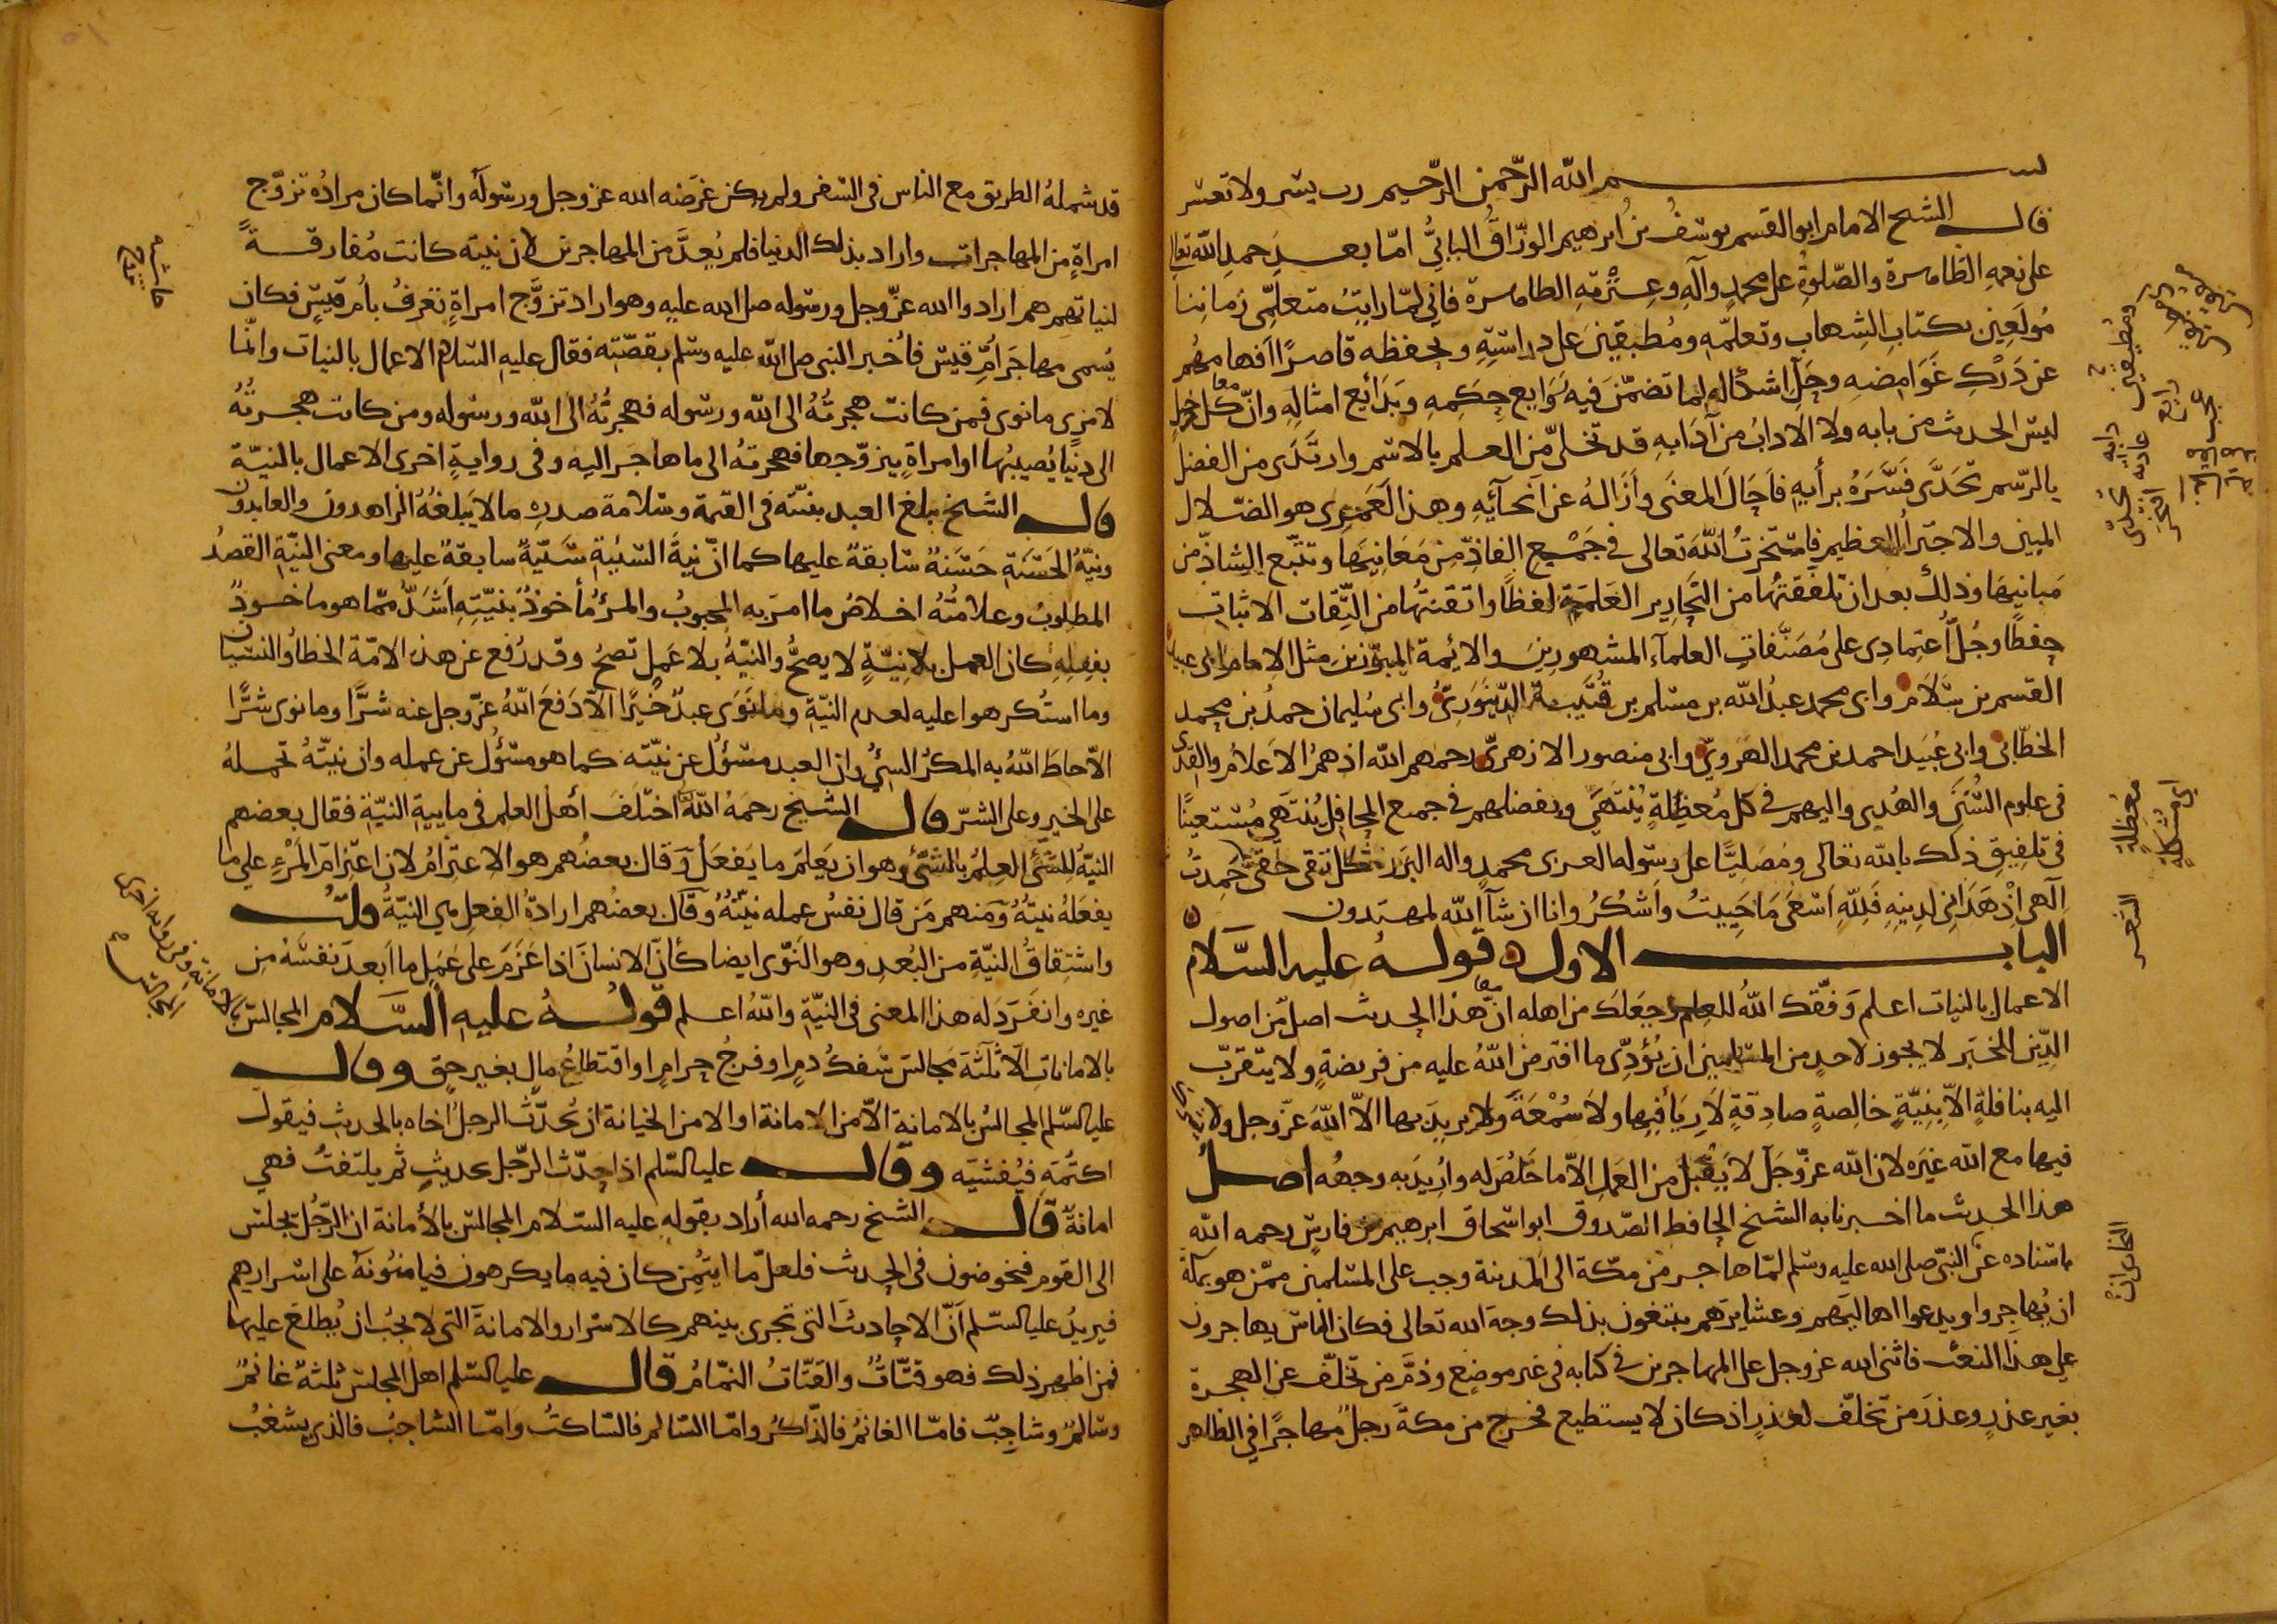 بسم الله الرّحمن الرّحيم رب يسر ولا تعسر
قال الشيخ الامام ابو القسم يوسفُ بنُ ابرهيم الورّاقُ البابىُّ امّا بعد حمدِ الله تعالى
على نعمهِ الظاهرة والصّلوةِ على محمدٍ وآلهِ وعِتْرتهِ الطاهرة فانى لمّا رايتُ متعلّمى زماننا
مُولَعين بكتابِ الشِهابِ وتعلّمهِ ومُطبقينَ على دراستِهِ وتحفظه قاصرًا افهامهُم
عن دَرْكِ غَوَامِضهِ وحَلِّ اشكالهِ لما تضمّنَ فيه نَوَابع حِكَمِهِ وبَدَائع امثالِهِ وانّ كل
ليس الحديث من بابه ولا الادابُ من آدَابهِ قد تحلّى من العلم بالاسم وارتَدَى من الفضل
بالرّسم تحَدَّى ففسَّرهُ برأيهِ فاَحَالَ المعنَى وأزَالهُ عن اَنحآئِهِ وهذا لَعَمرِى هو الضّلال
المبين والاجتراُ العظيم فاستخرتُ اللهَ تعالى فى جَمْعِ الفاذِّ من مَعَانِيهَا وتتبّع الشاذّ من
مَبانيهَا وذلك بعد ان تلقفتُها من النّحاريرِ العَلمةِ لفظًا واتقنتُها من الثِّقات الاثباتِ
حِفظًا وجُلُّ اعتِمادِى على مُصَنَّفاتِ العلمآءِ المشهورينَ والائمة المبرّزينِ مثل الامام ابى عبيد
القسم بن سَلّامٍ وابى محمد عبدُ الله بن مسلم بن قُتَيبة الدِّينَوَرىِّ وابى سُليمان حمدُ بن محمد
الخطّابى وابى عُبَيد احمد بن محمد الهَروىّ وابى منصور الازهرىّ رحمهم الله اذ همُ الاَعلامُ والقِدى
فى علوم السُّنَنِ والهُدى واليهم فى كل مُعضِلةٍ يُنتَهَى وبفضلهم فى جميع المحافِل يُنتَهَى مُستعينًا
فى تلفِيقِ ذلك بالله تعالى ومُصَلّيًا على رسوله العربى محمدٍ واله البَرَرة كل تقى خفى حَمِدتُ
الهى اذ هَدَانى لدِينِهِ فَلِلّهِ اَسْعَى مَا حَيِيتُ وَاَشكُرُ وانا ان شآ الله لمهتدون
الباب الاول قوله عليه السَّلام
الاعمال بالنيات اعلم وَفّقك اللهُ للعلم وجَعَلكَ من اهله انّ هذا الحديث اصلٌ من اصول
الدِّين لا يجوز لاحدٍ من المسلمين ان يُؤدِّى ما افترضَ اللهُ عليه من فريضةٍ ولا يتقربّ
اليه بنافلةٍ الاّ بنِيّةٍ خالِصةٍ صادِقةٍ لاَ رياءَ فيها ولا سُمْعَةً ولا يريد بها الاّ اللهَ عَزّ وجل ولا
فيها مع الله غيَره لان الله عزّ وجَل لا يَقبَل من العَمل الاّ ما خَلُصَ له واُرِيدَ به وجهُه اصل
هذا الحديث ما اخبرنا به الشيخ الحافظ الصّدوق ابو اسحاق ابرهيم بن فارسٍ رحمه الله
باسناده عن النبىّ صلى الله عليه وسلم لمّا هاجر من مكّة الى المدينة وجب على المسلمين ممّن هو بمكّة
ان يُهاجروا ويدعوا اهاليَهم وعشايرَهم يبتغون بذلك وجهَ الله تعالى فكان الناسُ يهاجرون
على هذا النعت فاثنى الله عز وجل على المهاجرين فى كتابه فى غير موضعٍ وذمَّ من تخلّف عن الهجرة
بغير عذرٍ وعذرَ من تخلّف لعذرٍ اذ كان لا يستطيع فخرج من مكة رجلٌ مهاجرًا فى الظاهر
ومُطبقين
مُعضِلةٍ
اى مُشكلةٍ
قد شملهُ الطريق مع الناس فى السفر ولم يكن غرضه الله عز وجل ورسولَه وانّما كان مرادُه تزوّج
امراةٍ من المهاجرات واراد بذلك الدنيا فلم يُعدَّ من المهاجرين لان نيته كانت مُفارقةً
لنياتهم هم ارادوا الله عزّ وجل ورسوله صلى الله عليه وهو اراد تزوَّج امراةٍ تعرفُ بأم قيسٍ فكان
يُسمى مهاجرَ اُمِّ قيس فاُخبر النبى صلى الله عليه وسلم بقصّته فقال عليه السّلام الاعمال بالنيات وانّما
لامرئٍ ما نوى فمن كانت هجرتُهُ الى الله ورسوله فهجرتُهُ الى الله ورسوله ومن كانت هجرتُهُ
الى دنيا يُصيبُها او امراةٍ يتزوّجها فهجرتهُ الى ما هاجَر اليه وفى روايةٍ اخرى الاعمال بالنيّة
قال الشيخ يبلغ العبد بنيّته فى القمة وسلامة صدرِه ما لا يَبلغهُ الزاهدون والعابدون
ونيّةُ الحَسَنةِ حَسَنةٌ سابقةٌ عليها كما انّ نِيةَ السّيّئةِ سَيّئةٌ سابقةٌ عليها ومعنى النيّةِ القصدُ
المطلوبُ وعلامتُهُ اخلاصُ ما امرَ به المحبوبُ والمرءُ مأخوذٌ بنيّتِهِ اَشدَّ ممّا هو ماخوذٌ
بفعلِهِ كان العمل بلا نِيّةٍ لا يصحُّ والنيّةُ بلا عَملٍ تصحُ وقد رُفع عن هذه الامّة الخطاُ والنسيان
وما استُكرهوا عليه لعدم النيّةِ وما نَوَى عبدٌ خيرًا الاّ دَفعَ اللهُ عزّ وجل عنه شرًّا وما نوى شرًّا
الاّ حاطَ اللهُ به المكرُ السيّئ وان العبد مسؤلٌ عن نيّته كما هو مسؤُلٌ عن عمله وان نيّتهُ تحملهُ
على الخير وعلى الشرّ قال الشيخ رحمَهُ اللهُ اختَلَفَ اَهلُ العلم فى مايِيةِ النيّة فقال بعضهم
النيّةُ للشّئ العِلمُ بالشّئ وهو ان يَعلمَ ما يَفعَلُ وقال بعضُهم هو الاعتزامُ لان اعتِزامَ المَرْءِ على ما
يفعلهُ نيّتهُ ومنهم مَن قال نفسُ عمله نيّتُهُ وقال بعضُهم ارادةُ الفعل هى النيّةُ قلتُ
واشتِقاقُ النيّةِ من البُعدِ وهو النّوى ايضا كأنّ الانسانَ اذا عَزَمَ على عَمَلٍ ما اَبعدَ نفسَهُ مِن
غيره وانفَردَ له هذا المعنى فى النيّةِ واللهُ اعلم قولُهُ عليهِ السَّلام المجالسُ
بالاماناتِ الاّ ثلثةَ مجالسَ سَفكُ دمٍ او فرجُ حرامٍ او اقتطاعُ مالٍ بغيرِ حقٍ وقال
عليه السّلم المجالسُ بالامانة الاّ من الامانة او الا من الخيانة ان يُحدّثَ الرجلُ اخاه بالحديث فيقول
اكتُمهُ فيُفشيَه وقال عليه السّلم اذا حدّث الرّجل بحديثٍ ثم يلتفتُ فهى
امانةٌ قال الشيخ رحمه الله أراد بقوله عليه السّلام المجالس بالأمانة ان الرّجُلَ يجلس
الى القوم فيخوضون فى الحديث فلعلّ ما ايتُمِن كان فيه ما يكرهون فيامنُونَهُ على اسرارِهم
فيريدُ عليه السّلم اَنّ الاحاديثَ التى تجرى بينهم كالاسرار والامانةَ التى لا يجبُ ان يُطلعَ عليها
فمن اظهر ذلك فهو قتّاتٌ والقتّاتُ النمّامُ قال عليه السّلم اهل المجلس ثلثةٌ غانمٌ
وسَالمٌ وشاجِبٌ فامّا الغانمُ فالذّاكرُ وامّا السّالم فالسّاكتُ وامّا الشاجبُ فالذى يشغبُ